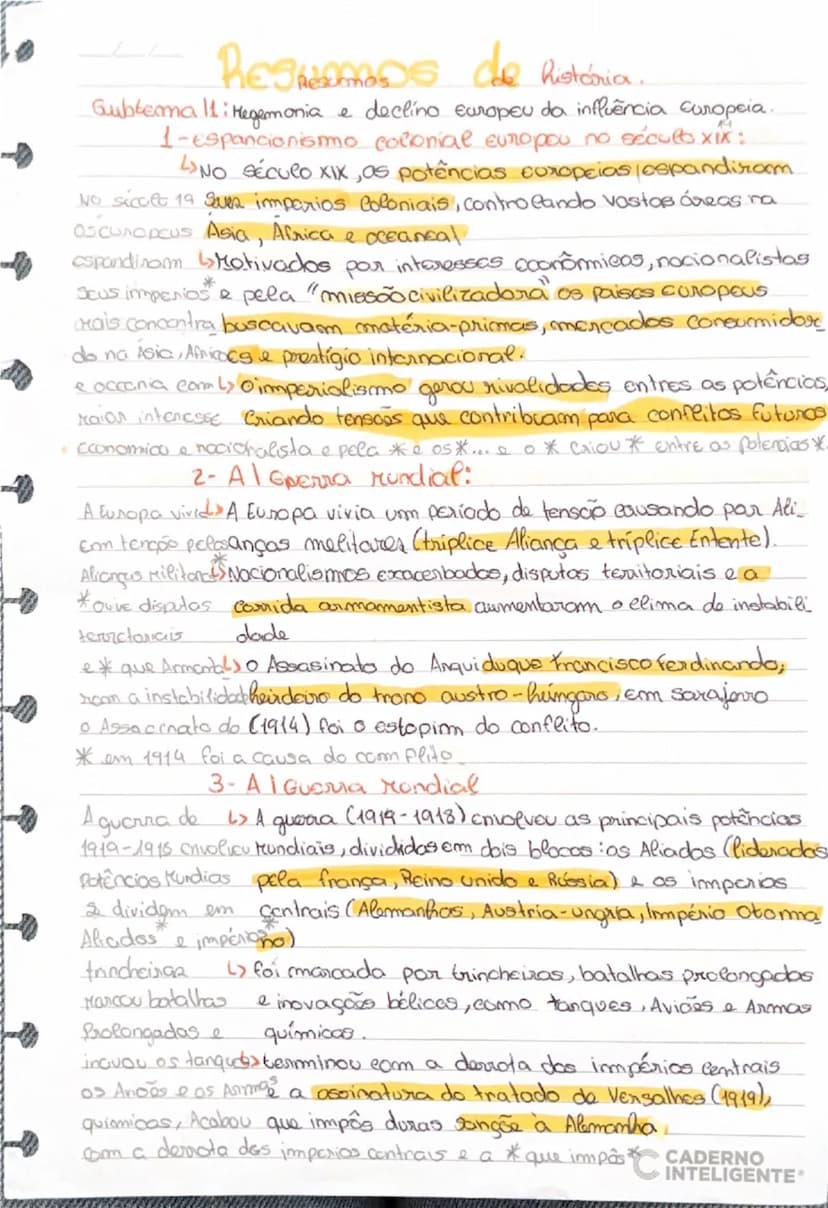 Resumos de
Resumos de história.
Subtema 11: Hegemonia e declino europeu da influência europeia.
1-espancionismo colonial europeu no século xix:
↳No século XIX, as potências europeias espandiram
No século 19 Seus imperios coloniais, controlando vastas áreas na
os europeus Ásia, África e oceaneal
espandiram ↳Motivados por interesses econômicos, nacionalistas
seus imperios* e pela "missão civilizadora" os paises europeus
mais concentra buscavam matéria-primas, mercados consumidor
do na Ásia, Africa es e prestígio internacional.
e occania com ↳O imperialismo gerou rivalidades entres as potências,
maior interesse Criando tensões que contribuam para conflitos futuros
economico e nacionalista e pela * e os *... e o * criou * entre as potencias *.
2- A I Gperra Mundial:
A Europa vivia ↳A Europa vivia um período de tensão causando por Ali_
em tenção pelas anças melitares (tríplice Aliança e tríplice Entente).
Alianças Militares* ↳Nacionalismos exacerbados, disputas territoriais e a
*ouve disputas corrida armamentista aumentaram o clima de instabili
terrictoriais dade
e * que Armenta ↳o Assasinato do Arquiduque francisco ferdinando,
ram a instabilidade heirdeiro do trono austro-húngaro, em sarajevo
o Assacinato do (1914) foi o estopim do conflito.
* em 1914 foi a causa do complito
3- A I Guerra Mondial
A guerra de ↳ A guerra (1914-1918) envolveu as principais potências
1919-1915 envolveu Mundiais, divididas em dois blocos: os Aliados (liderados
Potências Mundias pela frança, Reino unido e Rússia) e os imperios
se dividem em centrais (Alemanhos, Austria-ungria, Império Otoma
Aliados* e impérios* no)
trincheiras ↳ foi marcada por trincheiras, batalhas prolongadas
Marcou batalhas e inovação bélicas, como tanques, Aviões e Armas
Prolongados e químicas.
inovou os tanques ↳terminou com a derrota dos impérios centrais
os Avioes e os Armas e a assinatura do tratado de Versalhes (1919),
químicas, Acabou que impôs duras sanções à Alemanha
com a derrota dos imperios centrais e a * que impôs *
CADERNO
INTELIGENTE®